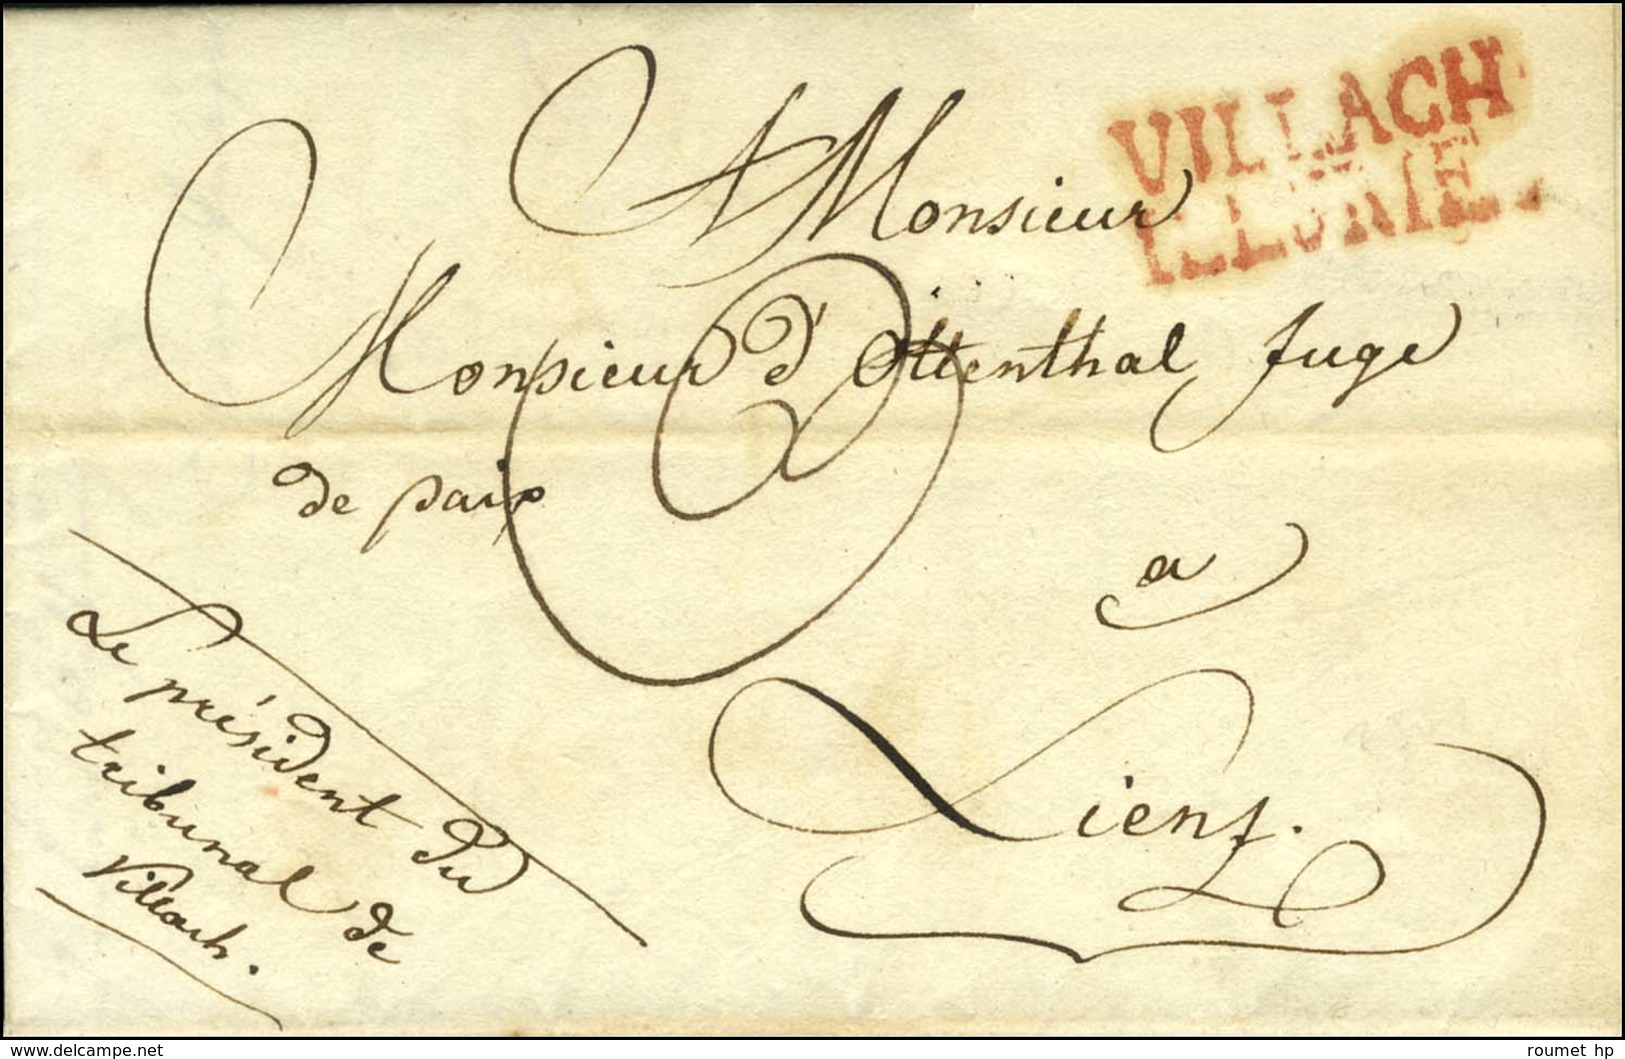 VILLACH
ILLYRIE.
A Monsieur
Monsieur d'Ottenthal Juge
de paix
a
Lienz.
Le président du
tribunal de
Villach.
delcampe.net
roumet hp